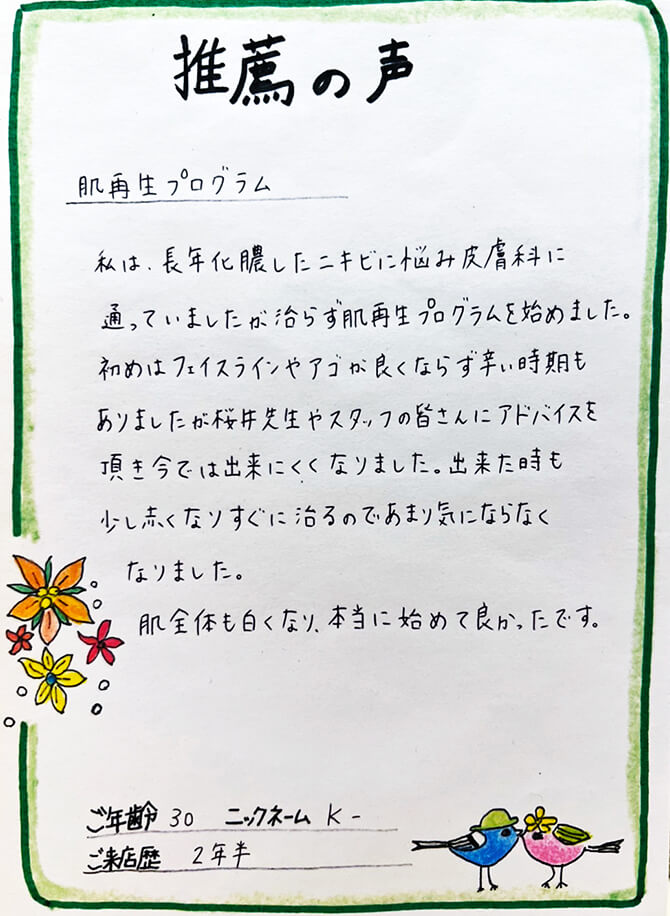 推薦の声
肌再生プログラム
私は、長年化膿したニキビに悩み皮膚科に
通っていましたが治らず肌再生プログラムを始めました。
初めはフェイスラインやアゴが良くならず辛い時期も
ありましたが桜井先生やスタッフの皆さんにアドバイスを
頂き今では出来にくくなりました。出来た時も
少し赤くなりすぐに治るのであまり気にならなく
なりました。
肌全体も白くなり、本当に始めて良かったです。
ご年齢 30 ニックネーム K-
ご来店歴 2年半